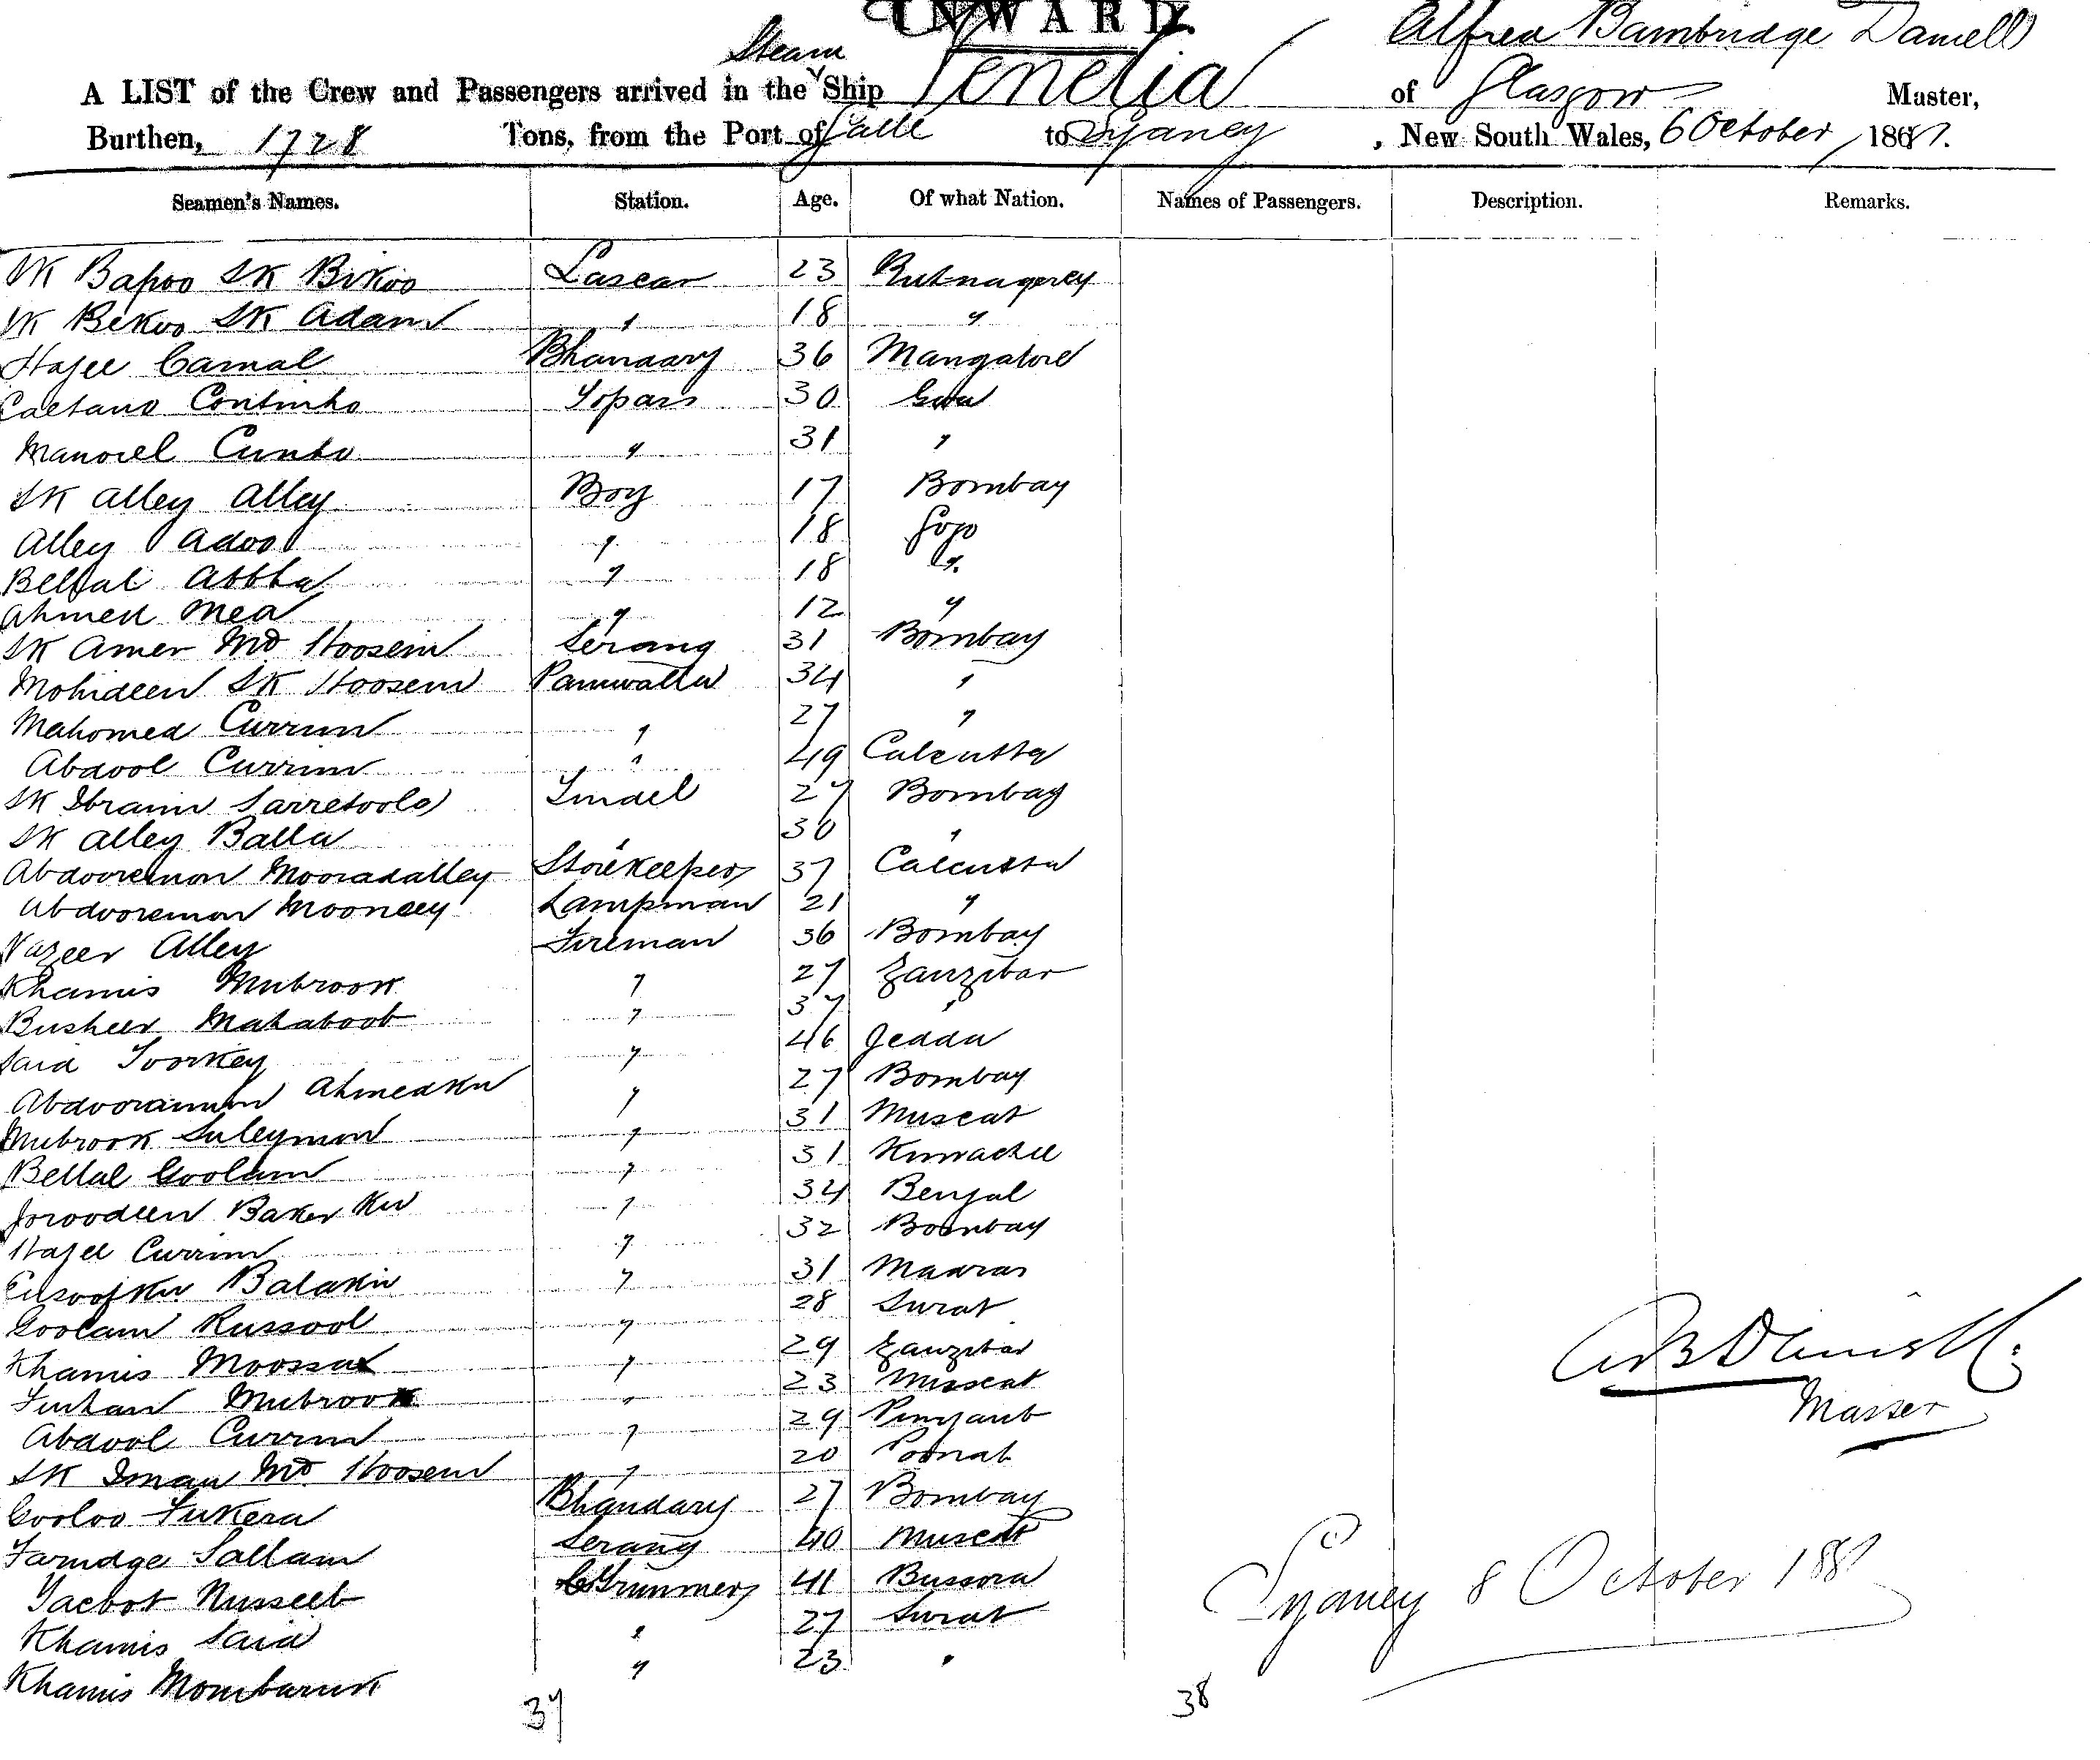 INWARD.
A LIST of the Crew and Passengers arrived in the Steam Ship Venetia of Glasgow Alfred Bambridge Daniell Master,
Burthen, 1728 Tons, from the Port of Galle to Sydney, New South Wales, 6 October 1881.
Seamen's Names. Station. Age. Of what Nation. Names of Passengers. Description. Remarks.
SK Bapoo SK Bikoo Lascar 23 Rutnagerey
SK Bekoo SK Adam " 18 "
Hajee Camal Bhandary 36 Mangalore
Caetano Continho Topass 30 Goa
Manoel Cunho " 31 "
SK Alley Alley Boy 17 Bombay
Alley Adoo " 18 Gogo
Bellal Abbha " 18 "
Ahmed Mea " 12 "
SK Amer Md Hoosein Serang 31 Bombay
Mohideen SK Hoosein Paniwalla 34 "
Mahomed Currim " 27 "
Abdool Currim " 49 Calcutta
SK Ibraim Sarretoola Tindel 27 Bombay
SK Alley Balla " 30 "
Abdooremon Mooradalley Storekeeper 37 Calcutta
Abdooremon Moonsey Lampman 21 "
Vazeer Alley Fireman 36 Bombay
Khamis Mubrook " 27 Zanzibar
Busheer Mahaboob " 37 "
Said Toorkey " 46 Jedda
Abdooraimon Ahmedkn " 27 Bombay
Mubrook Suleymon " 31 Muscat
Bellal Goolam " 31 Kurrachee
Joroodeen Baker Kn " 34 Bengal
Hajee Currim " 32 Bombay
Balakn " 31 Madras
Goolam Russool " 28 Surat
Khamis Moossa " 29 Zanzibar
Furhan Mubrook " 23 Muscat
Abdool Currim " 29 Punjaub
SK Iman Md. Hoosein " 20 Poonah
Gooloo Fukera Bhandary 27 Bombay
Farndge Sallam Serang 40 Muscat
Yacbot Nusseeb C Trimmers 41 Bussora
Khamis Said " 27 Surat
Khamis Mombaruk " 23 "
37 38
A B Daniell.
Master
Sydney 8 October 1881